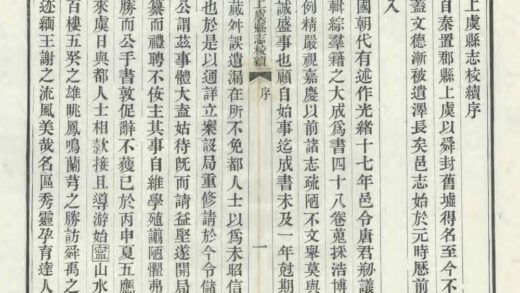 上虞縣志校續序
自秦置郡縣上虞以舜封舊墟得名至今不
蓋文德漸被遺澤長矣邑志始於元時歷前
入
國朝代有述作光緒十七年邑令唐君剙議
輯綜羣籍之大成爲書四十八卷蒐採浩博
例精嚴視嘉慶以前諸志疏陋不文舉莫與
誠盛事也顧自始事迄成書未及一年尅期
上虞縣志校續 序 一
蕆舛誤遺漏在所不免都人士以爲未昭信
也於是以通詳立案設局重修請於今令儲
公謂茲事體大盍姑待旣而請益堅遂開局
纂而禮聘不佞主其事自維學殖譾陋懼弗
勝而公手書敦促辭不獲已於丙申夏五應
來虞日與都人士相款接且導游始寍山水
百樓五癸之雄眺鳳鳴蘭芎之勝訪舜禹之
迹緬王謝之流風美哉名區秀靈孕育達人